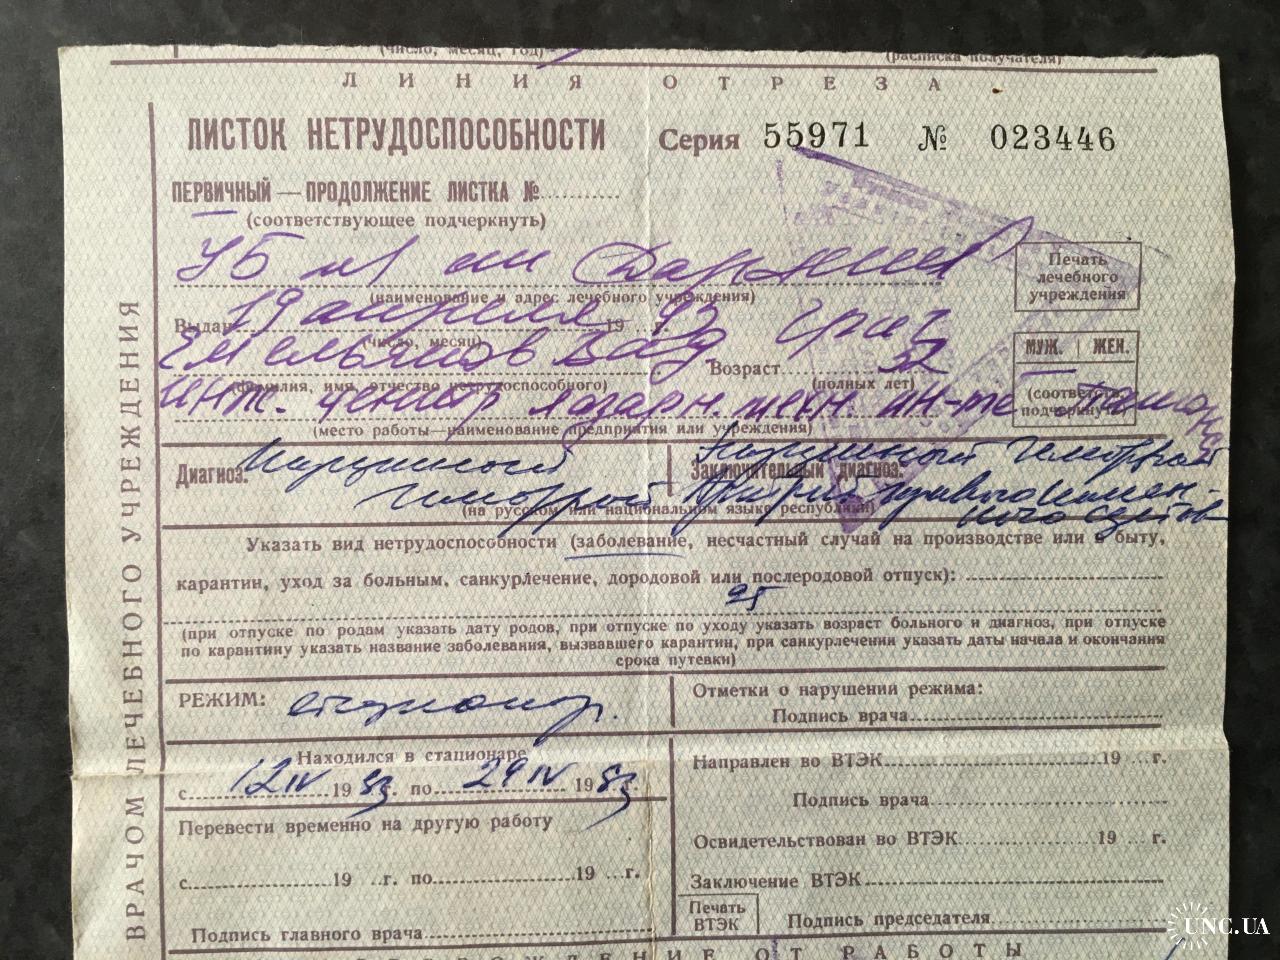 (число, месяц, год)
(расписка получателя)
ЛИНИЯ ОТРЕЗА
ЛИСТОК НЕТРУДОСПОСОБНОСТИ Серия 55971 № 023446
ПЕРВИЧНЫЙ — ПРОДОЛЖЕНИЕ ЛИСТКА №
(соответствующее подчеркнуть)
Печать лечебного учреждения
(наименование и адрес лечебного учреждения)
Выдан 19 апреля 19 83
(число, месяц)
МУЖ. | ЖЕН.
Емельянов Возраст 32
(фамилия, имя, отчество нетрудоспособного) (полных лет)
(соответств. подчеркнуть)
инж.
(место работы—наименование предприятия или учреждения)
Диагноз: Заключительный диагноз:
(на русском или национальном языке республики)
Указать вид нетрудоспособности (заболевание, несчастный случай на производстве или в быту,
карантин, уход за больным, санкурлечение, дородовой или послеродовой отпуск):
(при отпуске по родам указать дату родов, при отпуске по уходу указать возраст больного и диагноз, при отпуске
по карантину указать название заболевания, вызвавшего карантин, при санкурлечении указать даты начала и окончания
срока путевки)
РЕЖИМ: стационар.
Отметки о нарушении режима:
Подпись врача
Находился в стационаре
с 12 IV 19 83 г. по 29 IV 19 83 г.
Направлен во ВТЭК 19 г.
Подпись врача
Перевести временно на другую работу
Освидетельствован во ВТЭК 19 г.
с 19 г. по 19 г.
Заключение ВТЭК
Печать ВТЭК
Подпись председателя
Подпись главного врача
ЕНИЕ ОТ РАБОТЫ
ВРАЧОМ ЛЕЧЕБНОГО УЧРЕЖДЕНИЯ
UNC.UA